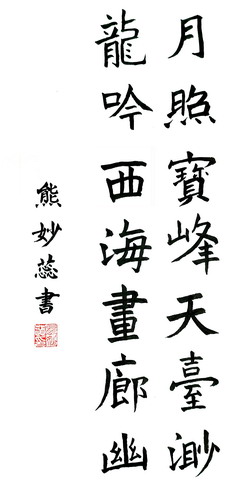 月照寶峰天臺渺
龍吟西海畫廊幽
熊妙蕊書